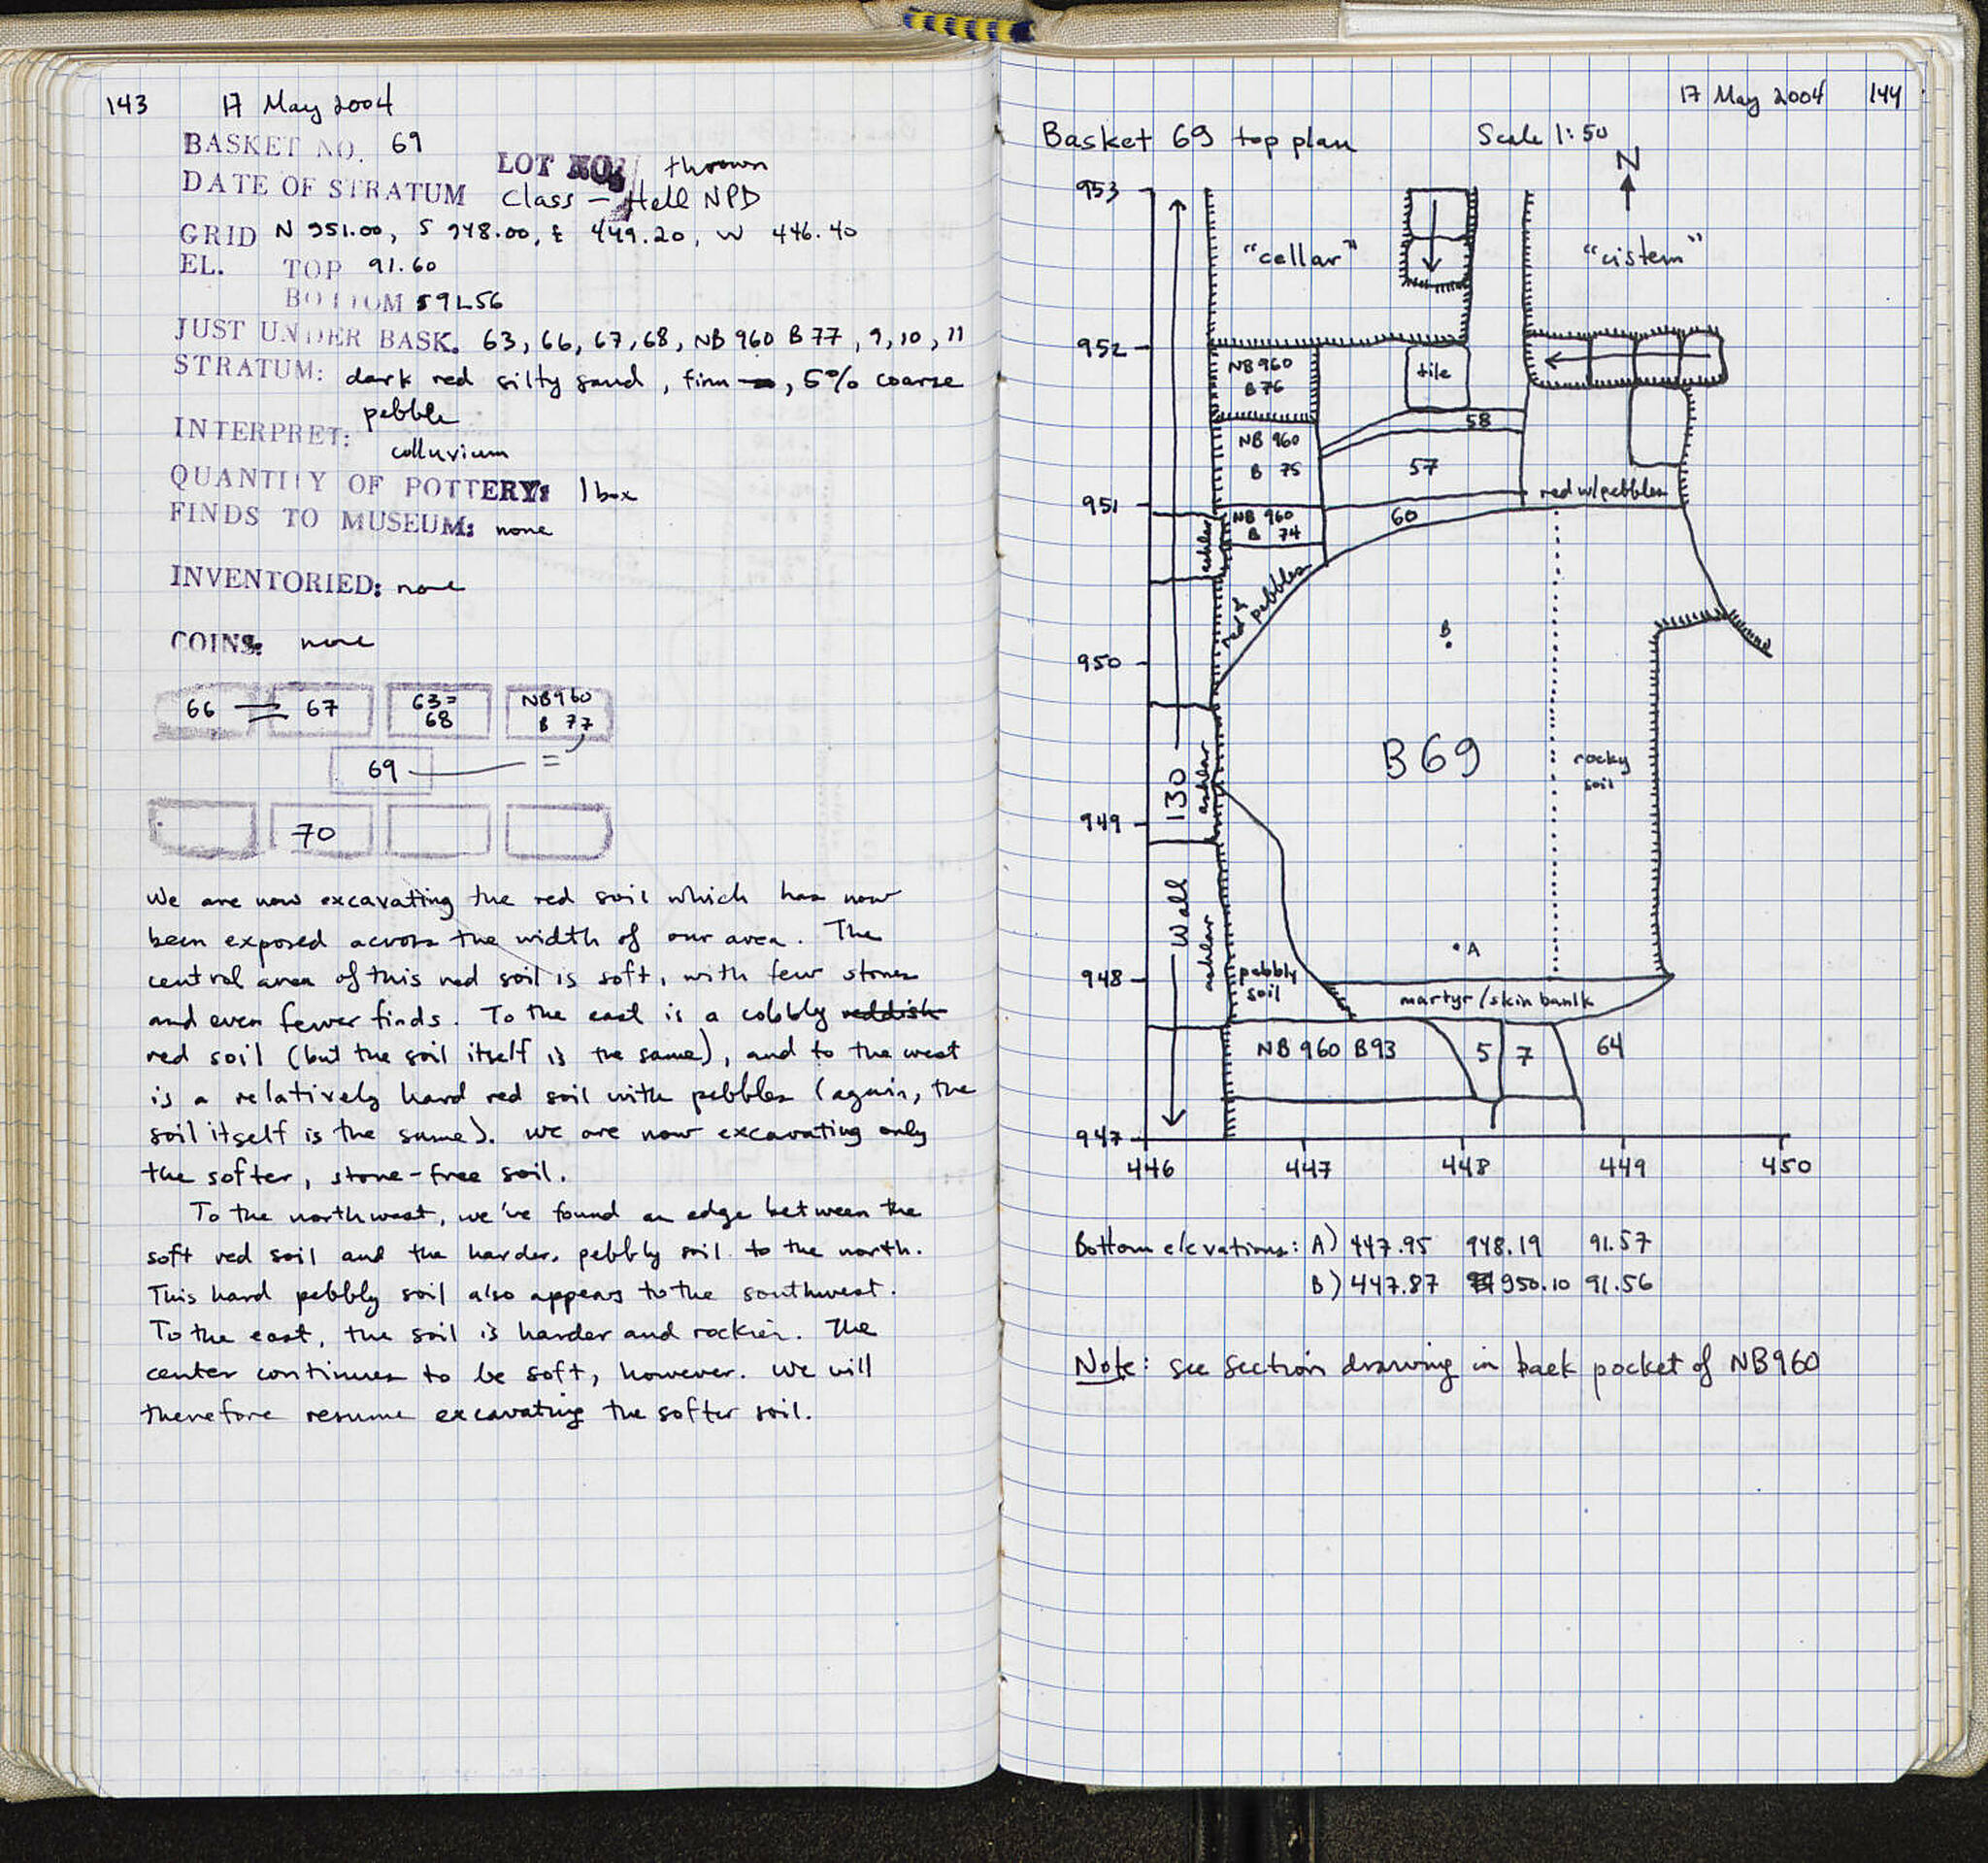 143 17 May 2004
BASKET NO. 69
LOT NO. thrown
DATE OF STRATUM Class - Hell NPD
GRID N 951.00, S 948.00, E 449.20, W 446.40
EL. TOP 91.60
BOTTOM 91.56
JUST UNDER BASK. 63, 66, 67, 68, NB 960 B 77, 9, 10, 11
STRATUM: dark red silty sand, firm, 5% coarse
pebble
INTERPRET:
colluvium
QUANTITY OF POTTERY: 1 box
FINDS TO MUSEUM: none
INVENTORIED: none
COINS: none
66 = 67 63= NB960
68 B 77
69 =
70
We are now excavating the red soil which has now
been exposed across the width of our area. The
central area of this red soil is soft, with few stones
and even fewer finds. To the east is a cobbly reddish
red soil (but the soil itself is the same), and to the west
is a relatively hard red soil with pebbles (again, the
soil itself is the same). We are now excavating only
the softer, stone-free soil.
To the northwest, we've found an edge between the
soft red soil and the harder, pebbly soil to the north.
This hard pebbly soil also appears to the southwest.
To the east, the soil is harder and rockier. The
center continues to be soft, however. We will
therefore resume excavating the softer soil.
17 May 2004 144
Basket 69 top plan Scale 1:50
N
953
"cellar" "cistern"
952
NB 960
B 76
tile
58
NB 960
B 75
57
red w/pebbles
951
NB 960
B 74
60
ashlar
red & pebbles
B
950
B69
rocky
soil
130
ashlar
949
Wall
ashlar
A
948
pebbly
soil
martyr/skin baulk
NB 960 B93 5 7 64
947
446 447 448 449 450
Bottom elevations: A) 447.95 948.19 91.57
B) 447.87 950.10 91.56
Note: see section drawing in back pocket of NB960